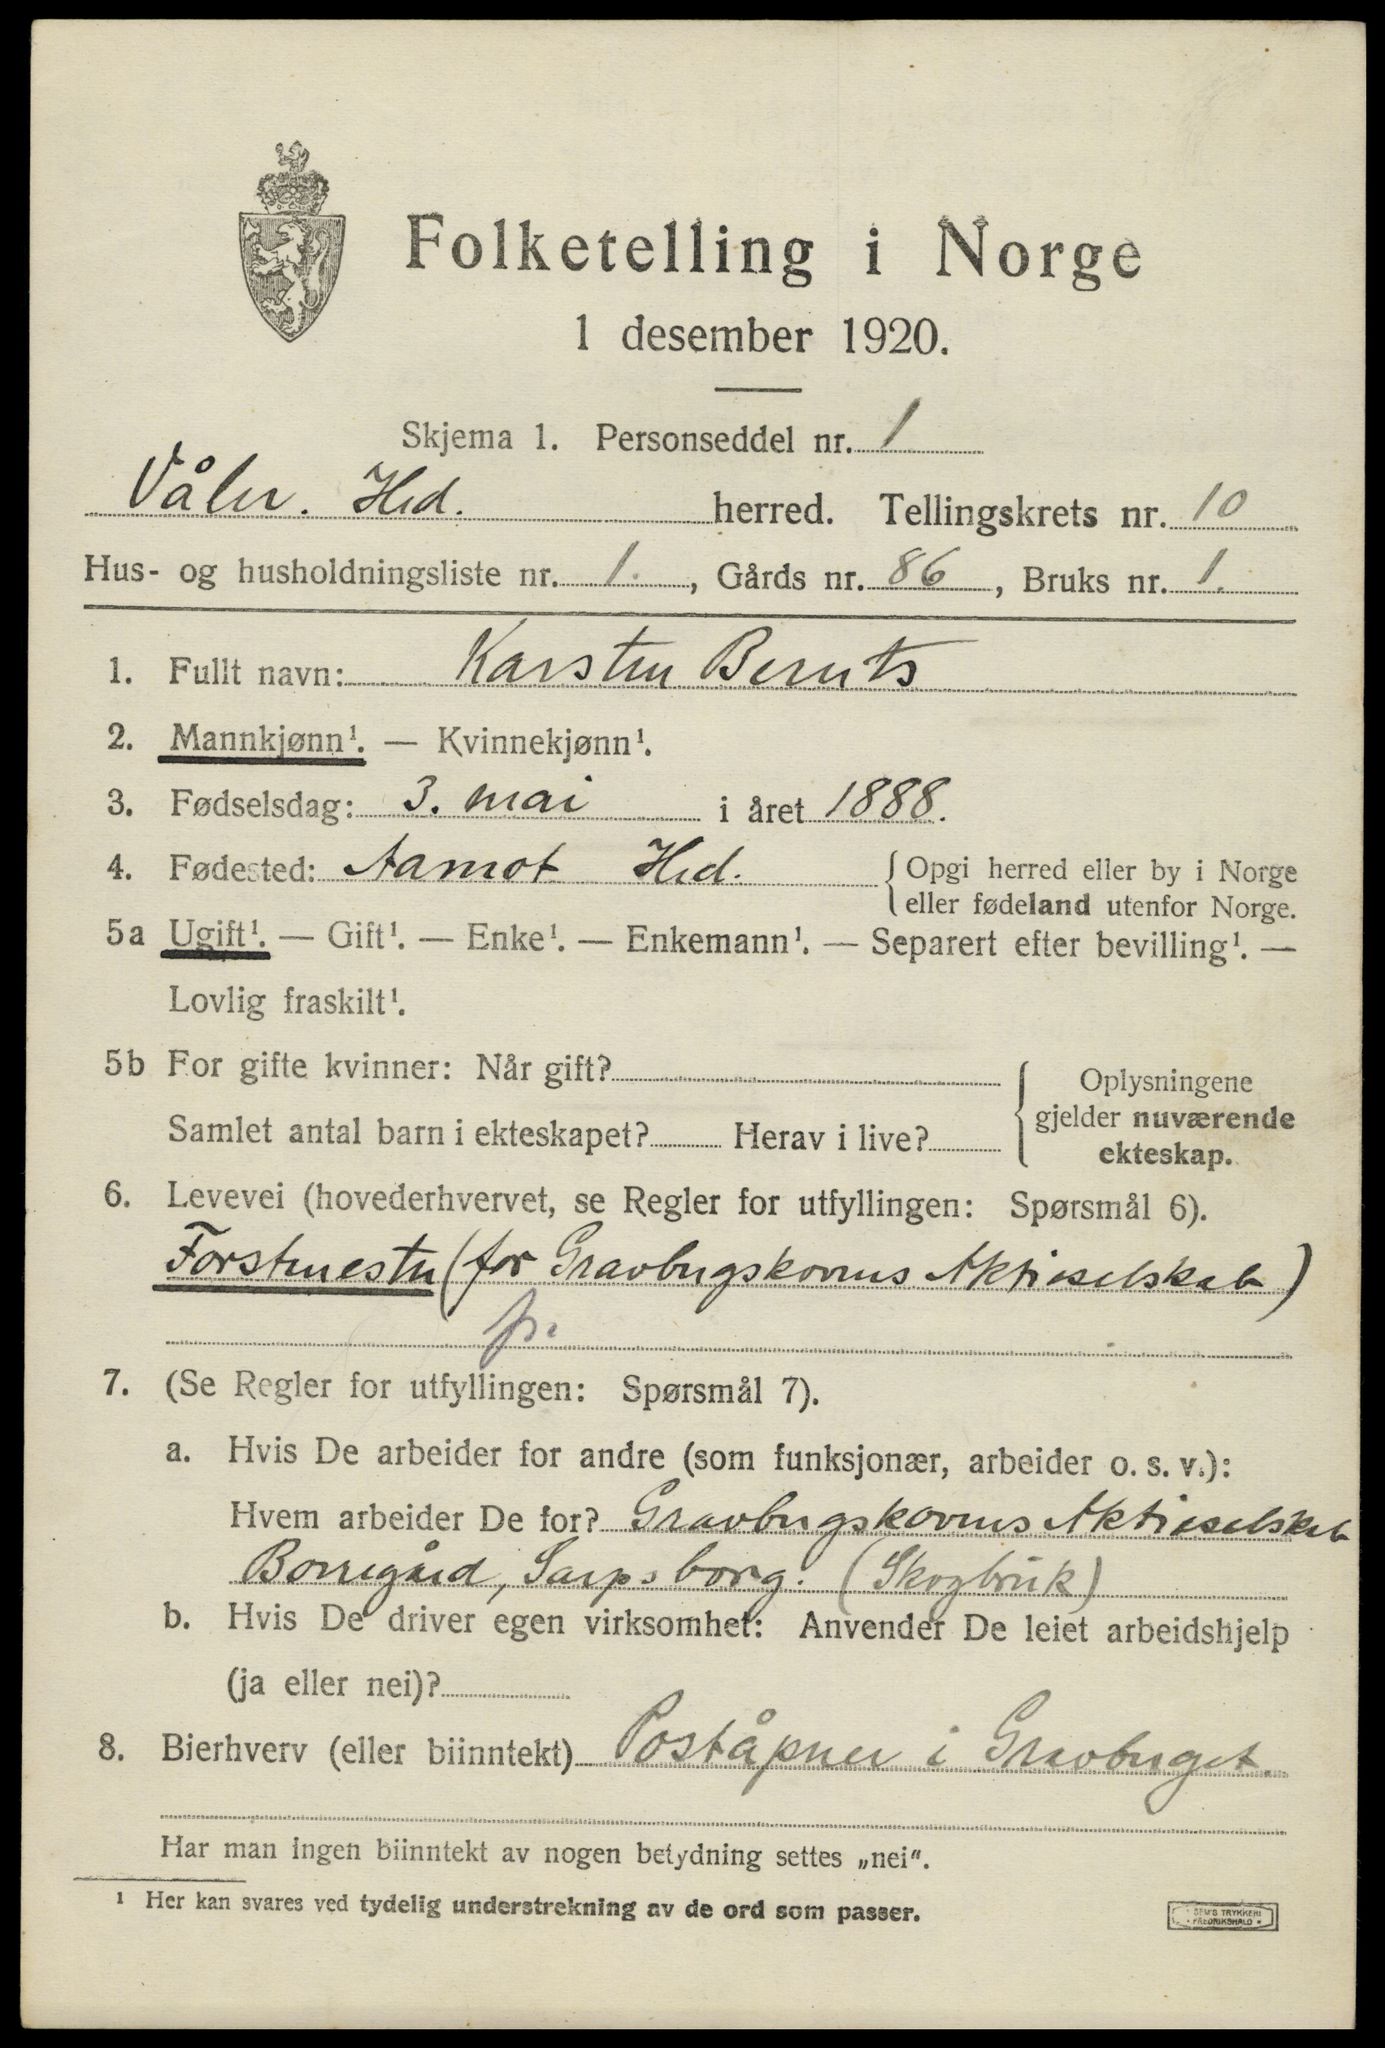 Folketelling i Norge
1 desember 1920.
Skjema 1. Personseddel nr. 1
Våler. Hed. herred. Tellingskrets nr. 10
Hus- og husholdningsliste nr. 1., Gårds nr. 86, Bruks nr. 1.
1. Fullt navn: Karsten Bernts
2. Mannkjønn¹. — Kvinnekjønn¹.
3. Fødselsdag: 3. mai i året 1888.
4. Fødested: Aamot Hed. { Opgi herred eller by i Norge
eller fødeland utenfor Norge.
5a Ugift¹. — Gift¹. — Enke¹. — Enkemann¹. — Separert efter bevilling¹. —
Lovlig fraskilt¹.
5b For gifte kvinner: Når gift?
Samlet antal barn i ekteskapet? Herav i live?
Oplysningene
gjelder nuværende
ekteskap.
6. Levevei (hovederhvervet, se Regler for utfyllingen: Spørsmål 6).
Forstmester (for Gravbugskovens Aktieselskab)
p.
7. (Se Regler for utfyllingen: Spørsmål 7).
a. Hvis De arbeider for andre (som funksjonær, arbeider o. s. v.):
Hvem arbeider De for? Gravbugskovens Aktieselskab
Borregård, Sarpsborg. (Skogbruk)
b. Hvis De driver egen virksomhet: Anvender De leiet arbeidshjelp
(ja eller nei)?
8. Bierhverv (eller biinntekt) Poståpner i Gravbuget.
Har man ingen biinntekt av nogen betydning settes „nei".
¹ Her kan svares ved tydelig understrekning av de ord som passer.
SEM'S TRYKKERI
FREDRIKSHALD